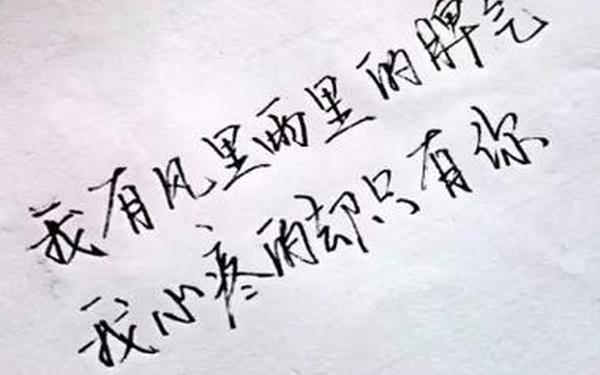 我有风里雨里的脾气
我心疼的却只有你